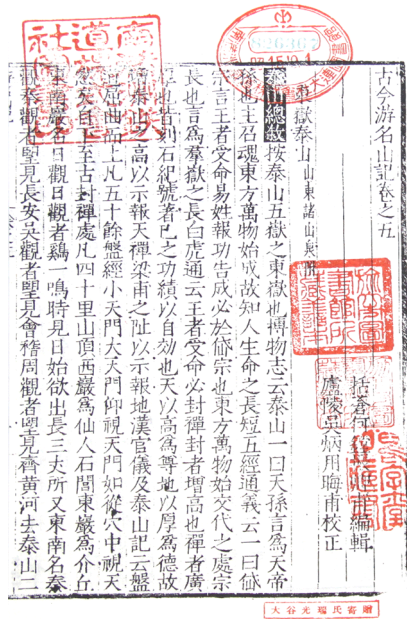 古今游名山記卷之五
嶽泰山山東諸山泉附
括蒼何甫編輯
廬陵吳炳用晦甫校正
泰山總敘按泰山五嶽之東嶽也博物志云泰山一曰天孫言爲天帝
孫也主召魂東方萬物始成故知人生命之長短五經通義云一曰岱
宗言王者受命易姓報功告成必於岱宗也東方萬物始交代之處宗
長也言爲羣嶽之長白虎通云王者受命必封禪封者增高也禪者廣
厚也皆刻石紀號著己之功績以自効也天以高爲尊地以厚爲德故
增泰山之高以示報天禪梁甫之阯以示報地漢官儀及泰山記云盤
道屈曲而上凡五十餘盤經小天門大天門仰視天門如從穴中視天
窗矣自下至古封禪處凡四十里山頂西巖爲仙人石閭東巖爲介丘
東南巖名日觀日觀者鷄一鳴時見日始欲出長三丈所又東南名秦
觀秦觀者望見長安吳觀者望見會稽周觀者望見齊黃河去泰山二
大谷光瑞氏寄贈